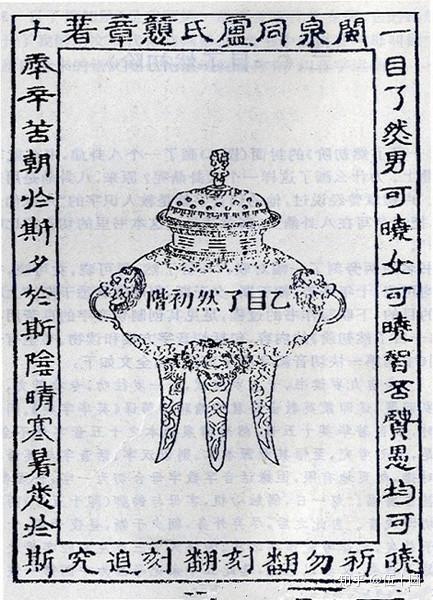 閩泉同盧氏戇章著
一目了然男可曉女可曉智否賢愚均可曉
十秊辛苦朝於斯夕於斯陰晴寒暑悉於斯
乙目了然初階
祈勿翻刻翻刻追究